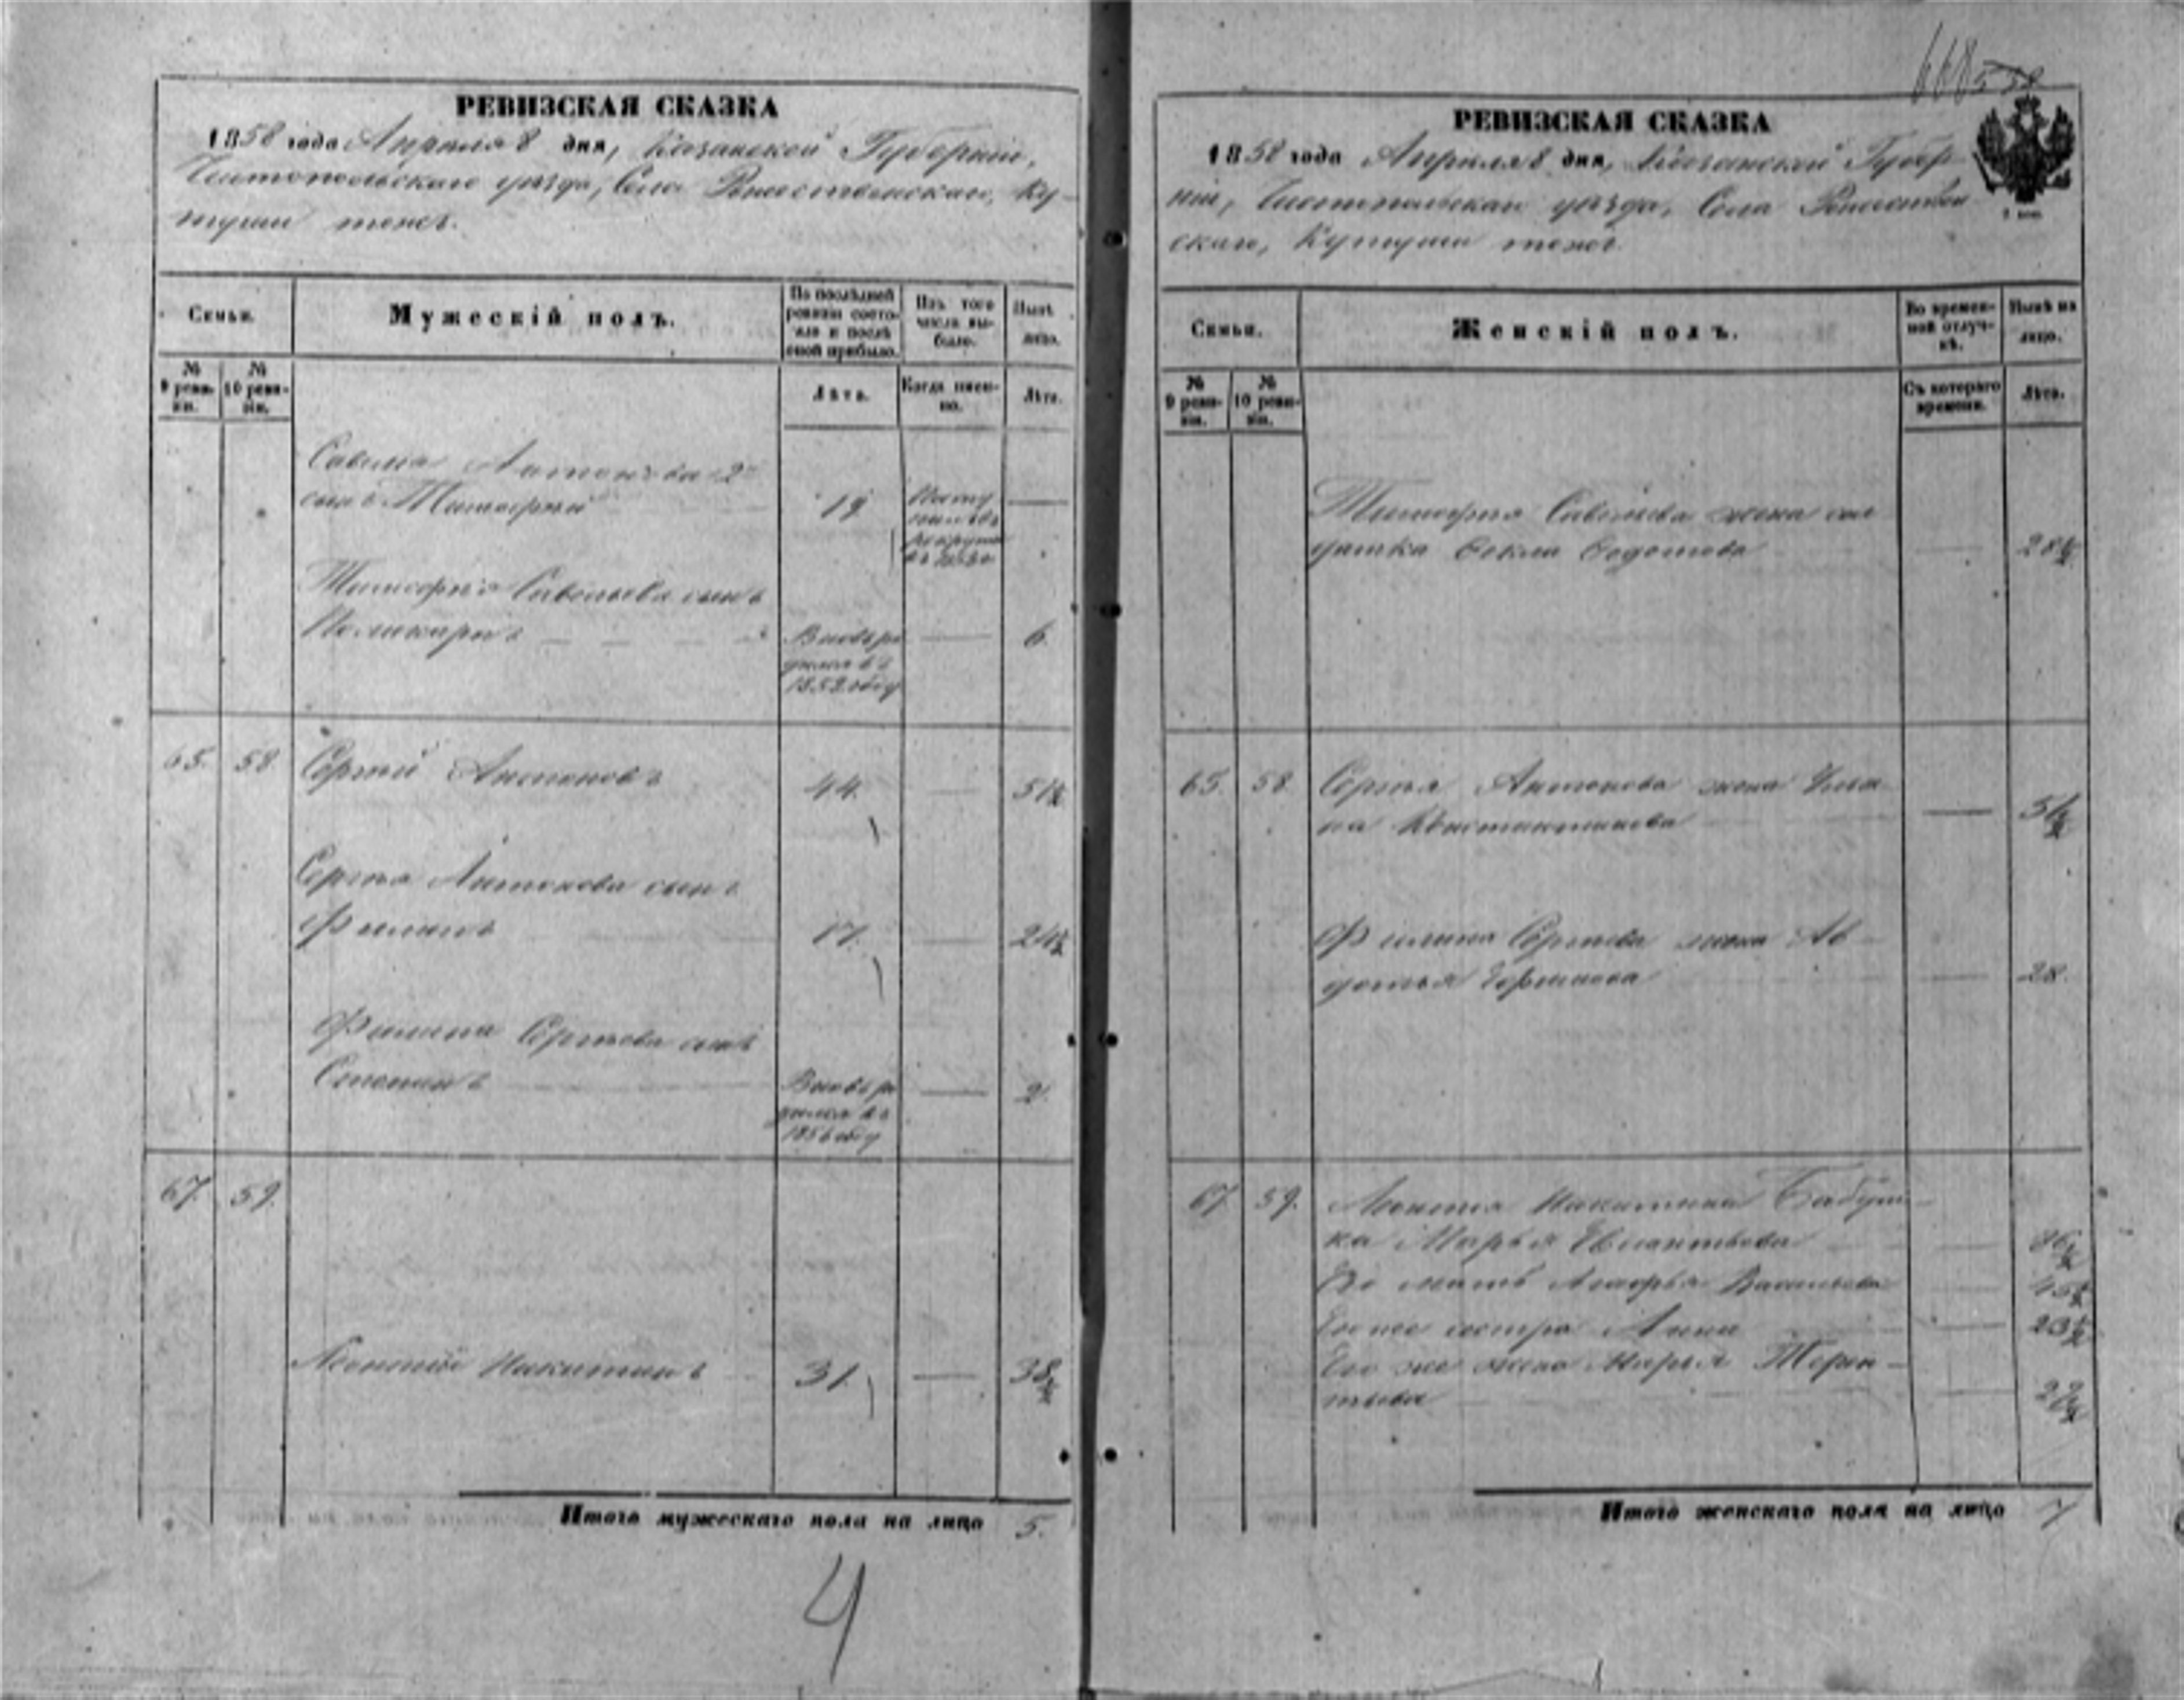 РЕВИЗСКАЯ СКАЗКА
1858 года Апреля 8 дня, Казанской Губерніи,
Чистопольскаго уѣзда, Села Рождественскаго, Ку-
туши тожъ.
Семьи.
Мужескій полъ.
По послѣдней ревизіи состояло и послѣ оной прибыло.
Изъ того числа выбыло.
Нынѣ на лицо.
№ 9 ревизіи.
№ 10 ревизіи.
Лѣта.
Когда именно.
Лѣта.
Савелья Антонова 2й
сынъ Тимофей 19
рекруты
Тимофея Савельева сынъ
Поликарпъ Вновь ро 6.
дился въ
1852 году
65. 58. Сергѣй Антоновъ 44. 51½
Сергѣя Антонова сынъ
Филипъ 17. 24½
Филипа Сергѣева сынъ
Степанъ Вновь ро 2.
дился въ
1856 году
67. 59.
Леонтій Никитинъ 31. 38½
Итого мужескаго пола на лицо 5.
4
668
РЕВИЗСКАЯ СКАЗКА
1858 года Апреля 8 дня, Казанской Губер-
ніи, Чистопольскаго уѣзда, Села Рождествен
скаго, Кутуши тожъ.
Семьи.
Женскій полъ.
Во временной отлучкѣ.
Нынѣ на лицо.
№ 9 ревизіи.
№ 10 ревизіи.
Съ котораго времени.
Лѣта.
Тимофея Савельева жена сол
датка Фекла Федотова 28½
65. 58. Сергѣя Антонова жена Улья
на Константинова 51½
Филипа Сергѣева жена Ав
дотья 28.
67. 59. Леонтья Никитина Бабуш-
ка Марья
Его мать Агафья Васильева 45½
Его же сестра Анна 23½
Его же жена Марья Терен-
тьева
Итого женскаго пола на лицо 7